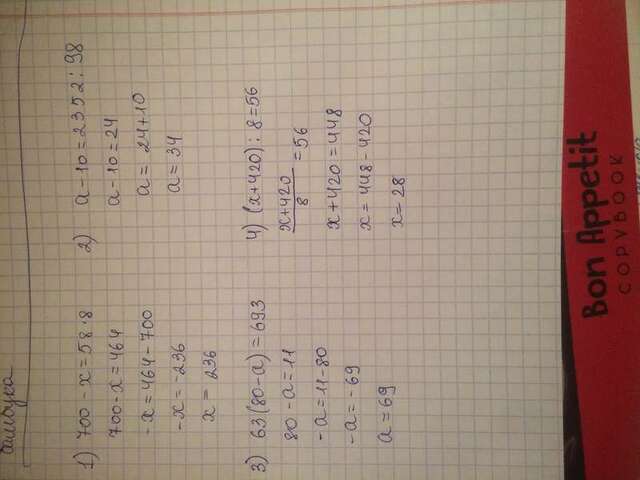 бамбука
1) 700 - x = 58 · 8
700 - x = 464
- x = 464 - 700
- x = -236
x = 236
2) a - 10 = 2352 : 98
a - 10 = 24
a = 24 + 10
a = 34
3) 63 (80 - a) = 693
80 - a = 11
- a = 11 - 80
- a = - 69
a = 69
4) (x + 420) : 8 = 56
x + 420
8 = 56
x + 420 = 448
x = 448 - 420
x = 28
Bon Appetit
COPYBOOK